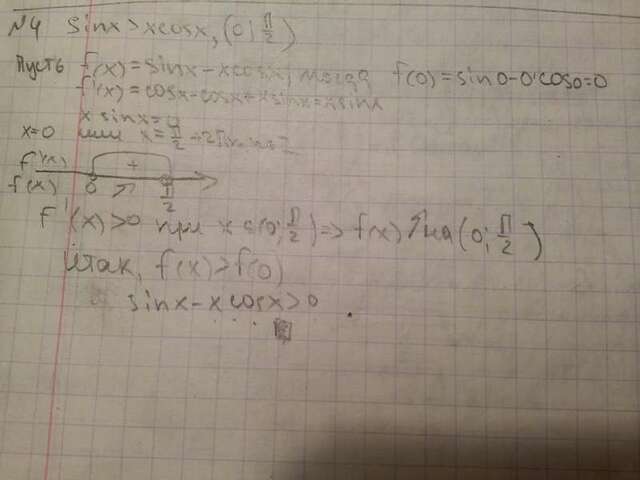 №4 sinx>xcosx, (0; π/2)
Пусть f(x)=sinx-xcosx, тогда f(0)=sin0-0·cos0=0
f'(x)=cosx-cosx+xsinx=xsinx
x sinx=0
x=0 или x=π/2+2πn, n∈Z
f'(x) +
f(x) 0 ↗ π/2
f'(x)>0 при x∈(0; π/2)=>f(x)↗на(0; π/2)
Итак, f(x)>f(0)
sinx-xcosx>0